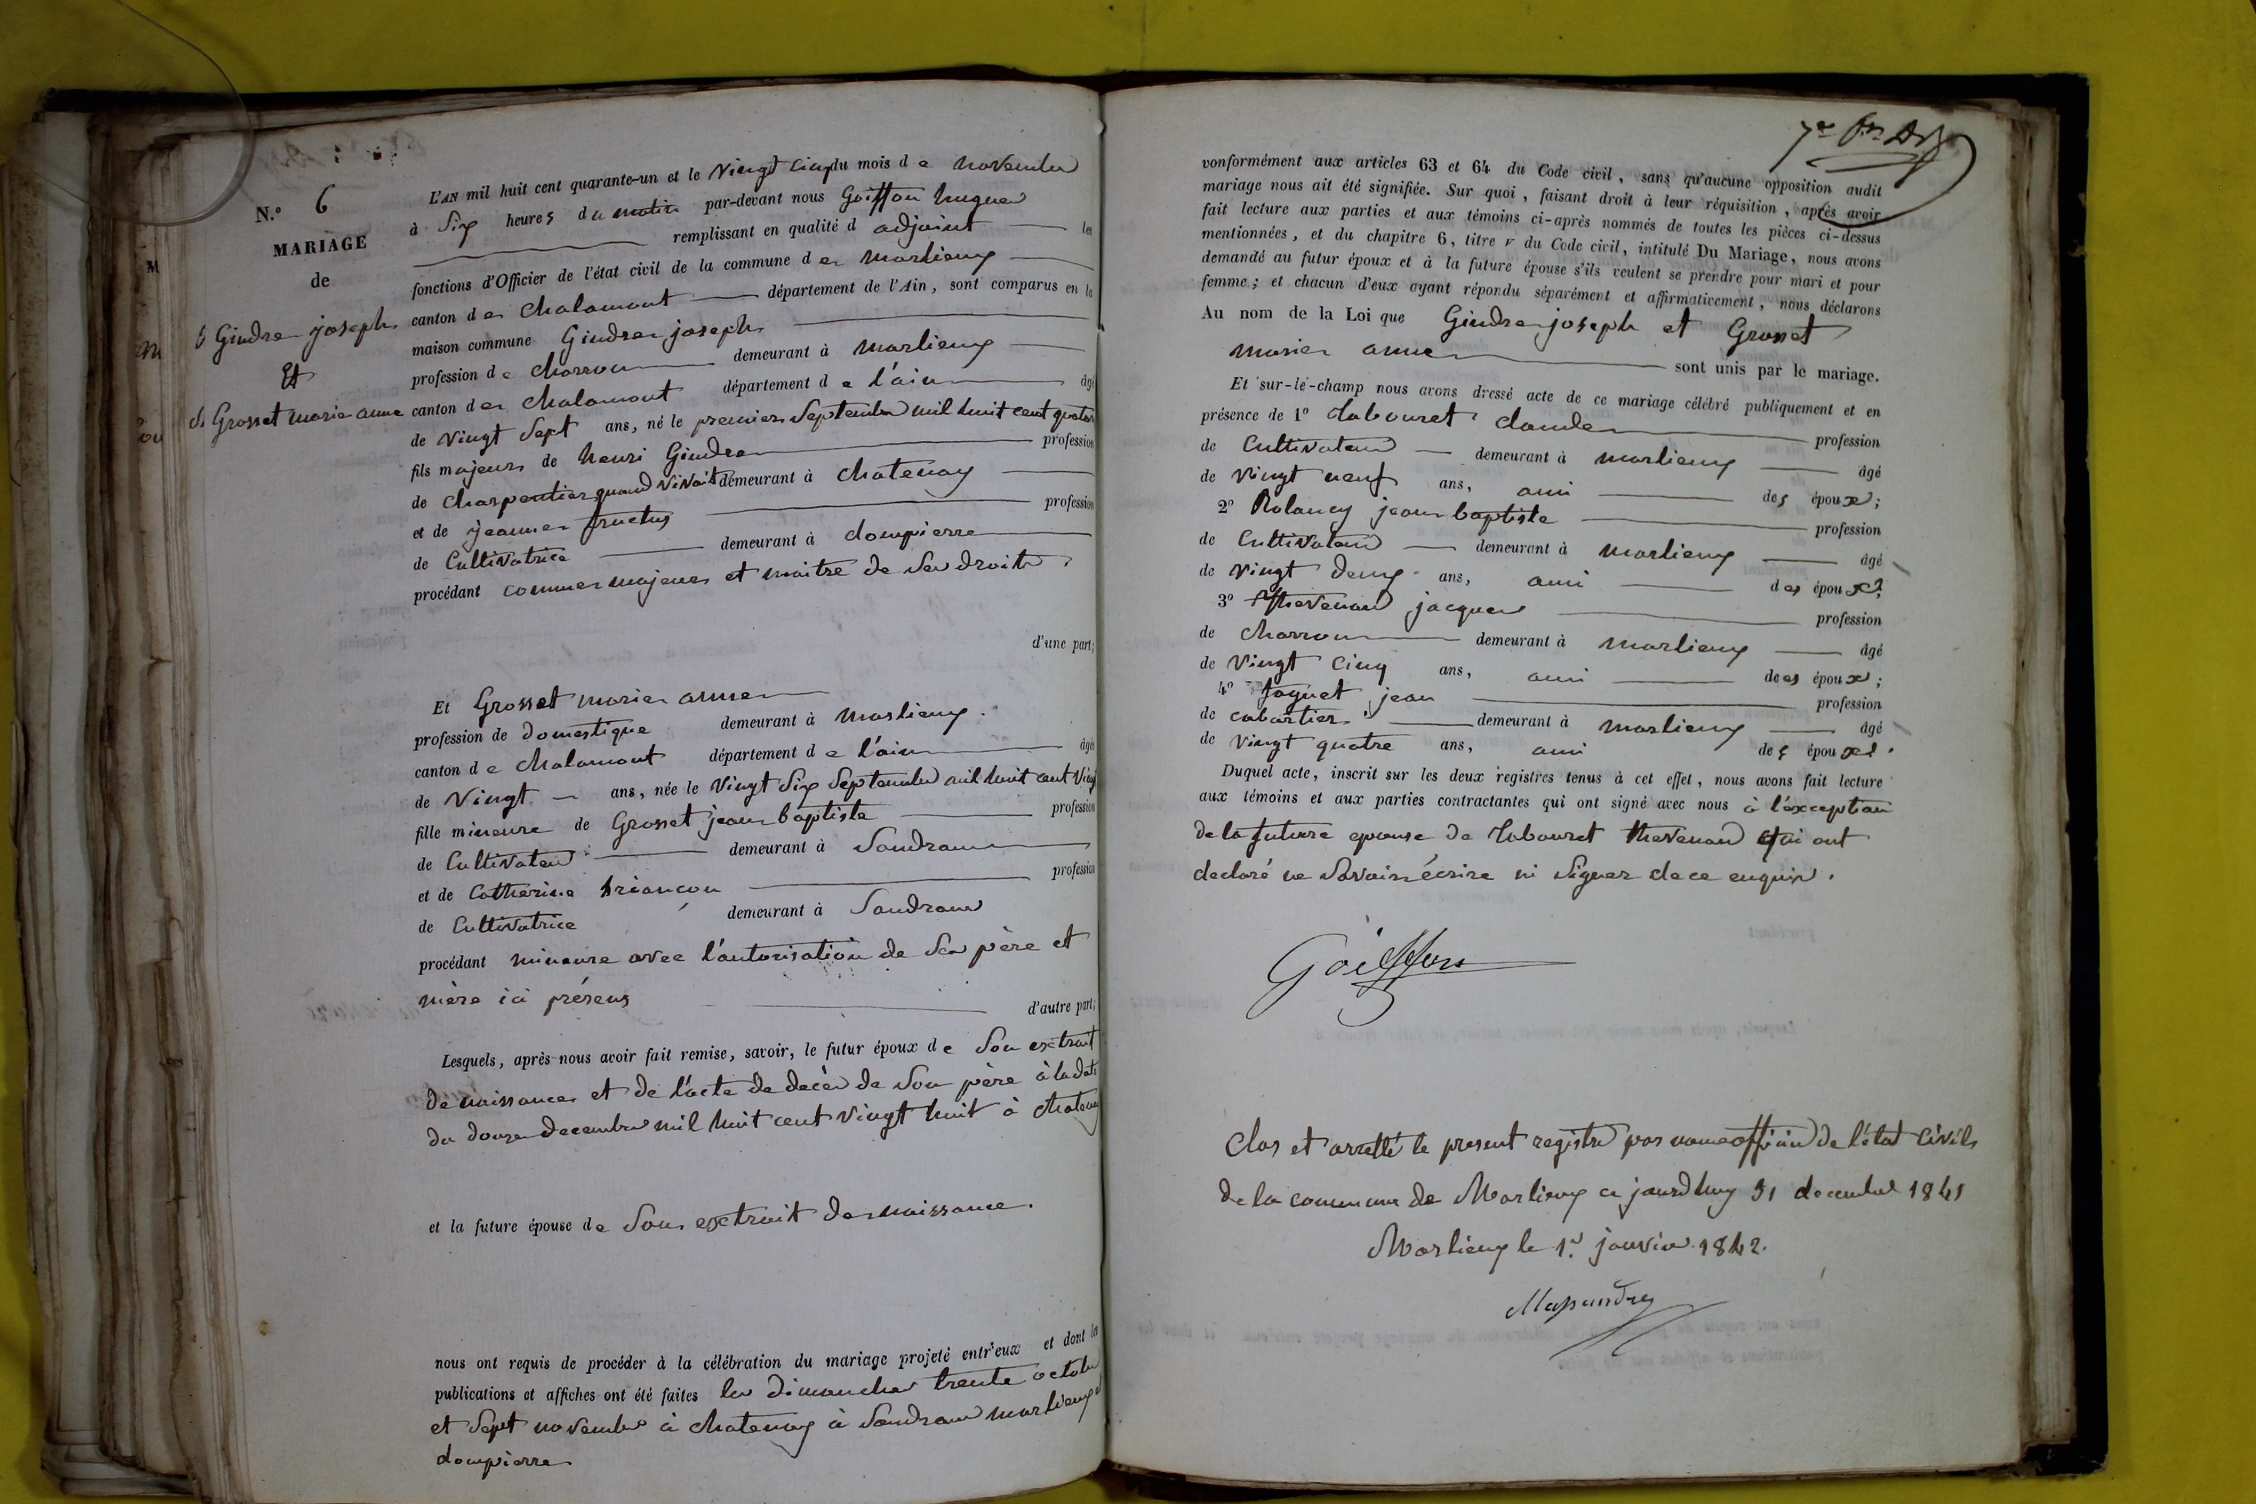 N.º 6
MARIAGE
de
Gindre joseph
Et
Grosset marie anne
L'AN mil huit cent quarante-un et le vingt cinq du mois de novembre
à six heures du matin par-devant nous Goiffon hugues
remplissant en qualité d adjoint les
fonctions d'Officier de l'état civil de la commune de marlieux
canton de chalamont département de l'Ain, sont comparus en la
maison commune Gindre joseph
profession de charron demeurant à marlieux
canton de chalamont département de l'ain âgé
de vingt sept ans, né le premier septembre mil huit cent quatorze
fils majeur de henri Gindre profession
de charpentier quand vivait demeurant à chatenay
et de jeanne fructus profession
de cultivatrice demeurant à dompierre
procédant comme majeur et maitre de ses droits
d'une part;
Et Grosset marie anne
profession de domestique demeurant à marlieux
canton de chalamont département de l'ain âgée
de vingt ans, née le vingt six septembre mil huit cent vingt
fille mineure de Grosset jean baptiste profession
de cultivateur demeurant à Sandrans
et de Catherine briancon profession
de cultivatrice demeurant à Sandrans
procédant mineure avec l'autorisation de ses père et
mère ici présens d'autre part;
Lesquels, après nous avoir fait remise, savoir, le futur époux de son extrait
de naissance et de l'acte de decès de son père à la date
du douze decembre mil huit cent vingt huit à chatenay
et la future épouse de son extrait de naissance.
nous ont requis de procéder à la célébration du mariage projeté entr'eux et dont les
publications et affiches ont été faites les dimanches trente octobre
et sept novembre à chatenay à Sandrans marlieux et
dompierre
vonformément aux articles 63 et 64 du Code civil, sans qu'aucune opposition audit
mariage nous ait été signifiée. Sur quoi, faisant droit à leur réquisition, après avoir
fait lecture aux parties et aux témoins ci-après nommés de toutes les pièces ci-dessus
mentionnées, et du chapitre 6, titre v du Code civil, intitulé Du Mariage, nous avons
demandé au futur époux et à la future épouse s'ils veulent se prendre pour mari et pour
femme; et chacun d'eux ayant répondu séparément et affirmativement, nous déclarons
Au nom de la Loi que Gindre joseph et Grosset
marie anne sont unis par le mariage.
Et sur-le-champ nous avons dressé acte de ce mariage célébré publiquement et en
présence de 1º tabouret claude profession
de cultivateur demeurant à marlieux âgé
de vingt neuf ans, ami des époux;
2º Rolancy jean baptiste profession
de cultivateur demeurant à marlieux âgé
de vingt deux ans, ami des époux;
3º thevenard jacques profession
de charron demeurant à marlieux âgé
de vingt cinq ans, ami des époux;
4º faguet jean profession
de cabartier demeurant à marlieux âgé
de vingt quatre ans, ami des époux.
Duquel acte, inscrit sur les deux registres tenus à cet effet, nous avons fait lecture
aux témoins et aux parties contractantes qui ont signé avec nous à l'exception
de la future epouse de tabouret thevenard qui ont
declaré ne savoir écrire ni signer de ce enquis.
Goiffon
Clos et arretté le present registre par nous officier de l'état civils
de la commune de Marlieux ce jourd huy 31 decembre 1841
Marlieux le 1.r janvier 1842.